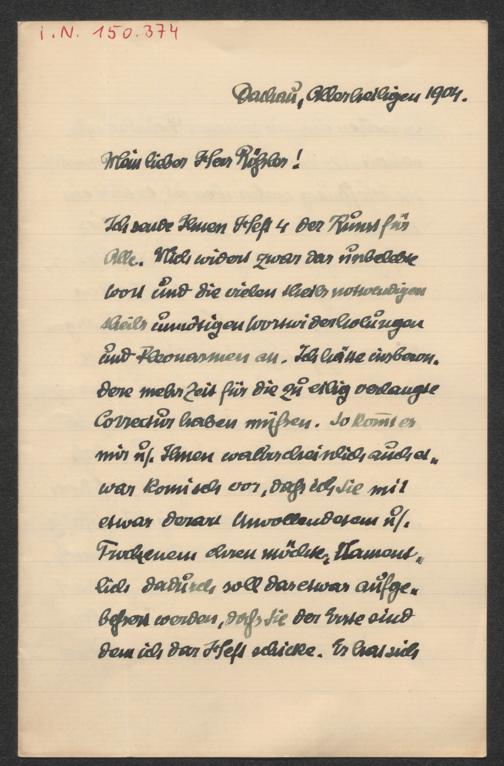 I.N. 150.374
Dachau, Allerheiligen 1904.
Mein lieber Herr Rößler!
Ich sende Ihnen Heft 4 der Kunst für
Alle. Mich widert zwar das unbelebte
Wort und die vielen theils notwendigen
theils unnötigen Wortwiederholungen
und Pleonasmen an. Ich hätte insbeson-
dere mehr Zeit für die zu eilig verlangte
Correctur haben müssen. So kommt es
mir u. Ihnen wahrscheinlich auch et-
was komisch vor, daß ich Sie mit
etwas derart Unvollendetem u.
Trockenem ehren möchte, Nament-
lich dadurch soll das etwas aufge-
bessert werden, daß Sie der Erste sind
dem ich das Heft schicke. Es hat sich